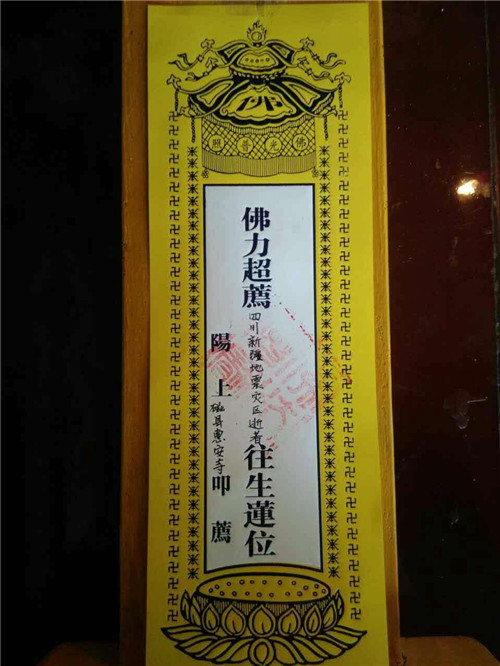 佛光普照
佛力超薦四川新疆地震灾区逝者往生蓮位
陽上磁县惠安寺叩薦